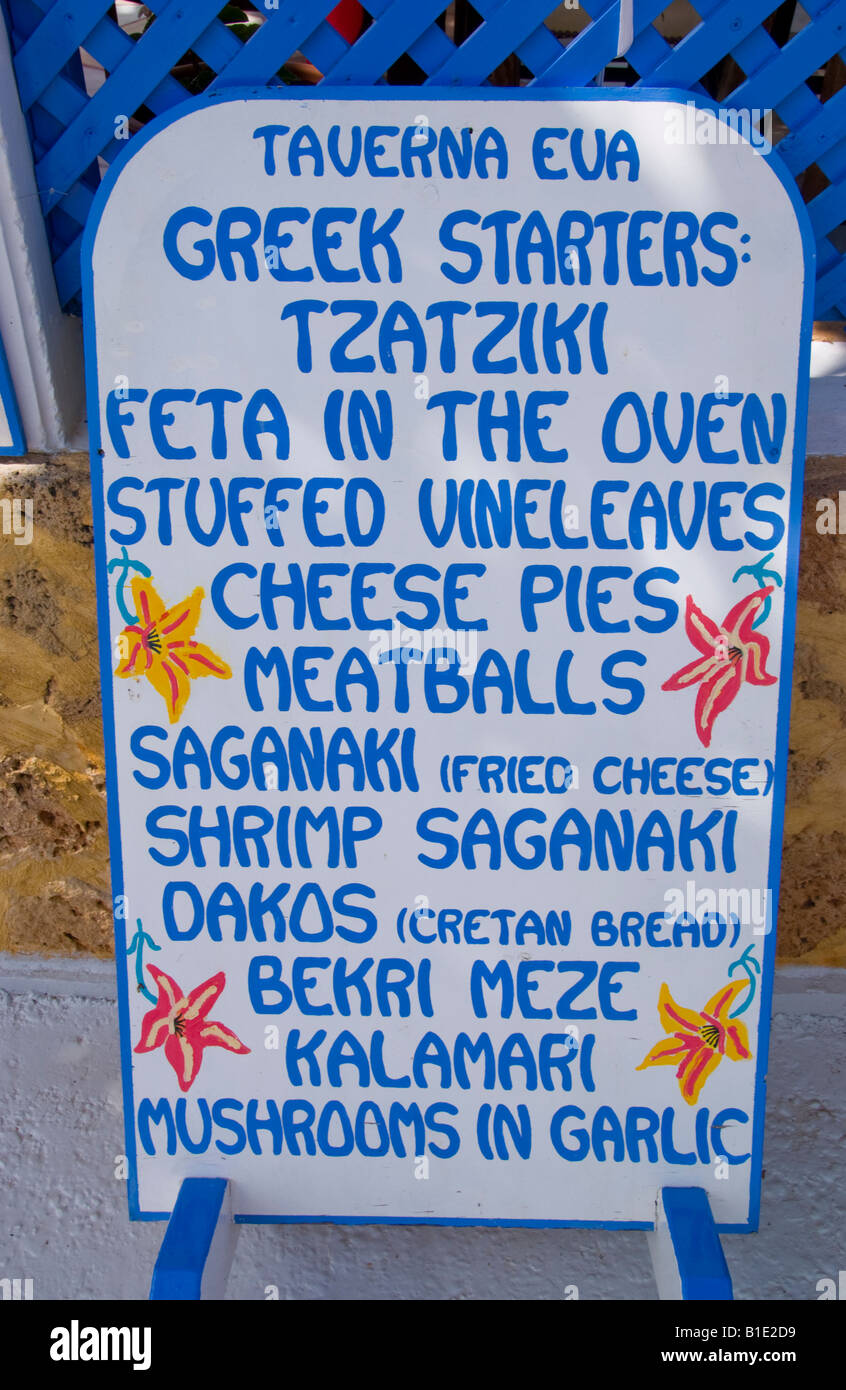 TAVERNA EVA
GREEK STARTERS:
TZATZIKI
FETA IN THE OVEN
STUFFED VINELEAVES
CHEESE PIES
MEATBALLS
SAGANAKI (FRIED CHEESE)
SHRIMP SAGANAKI
DAKOS (CRETAN BREAD)
BEKRI MEZE
KALAMARI
MUSHROOMS IN GARLIC
alamy
Image ID: B1E2D9
www.alamy.com